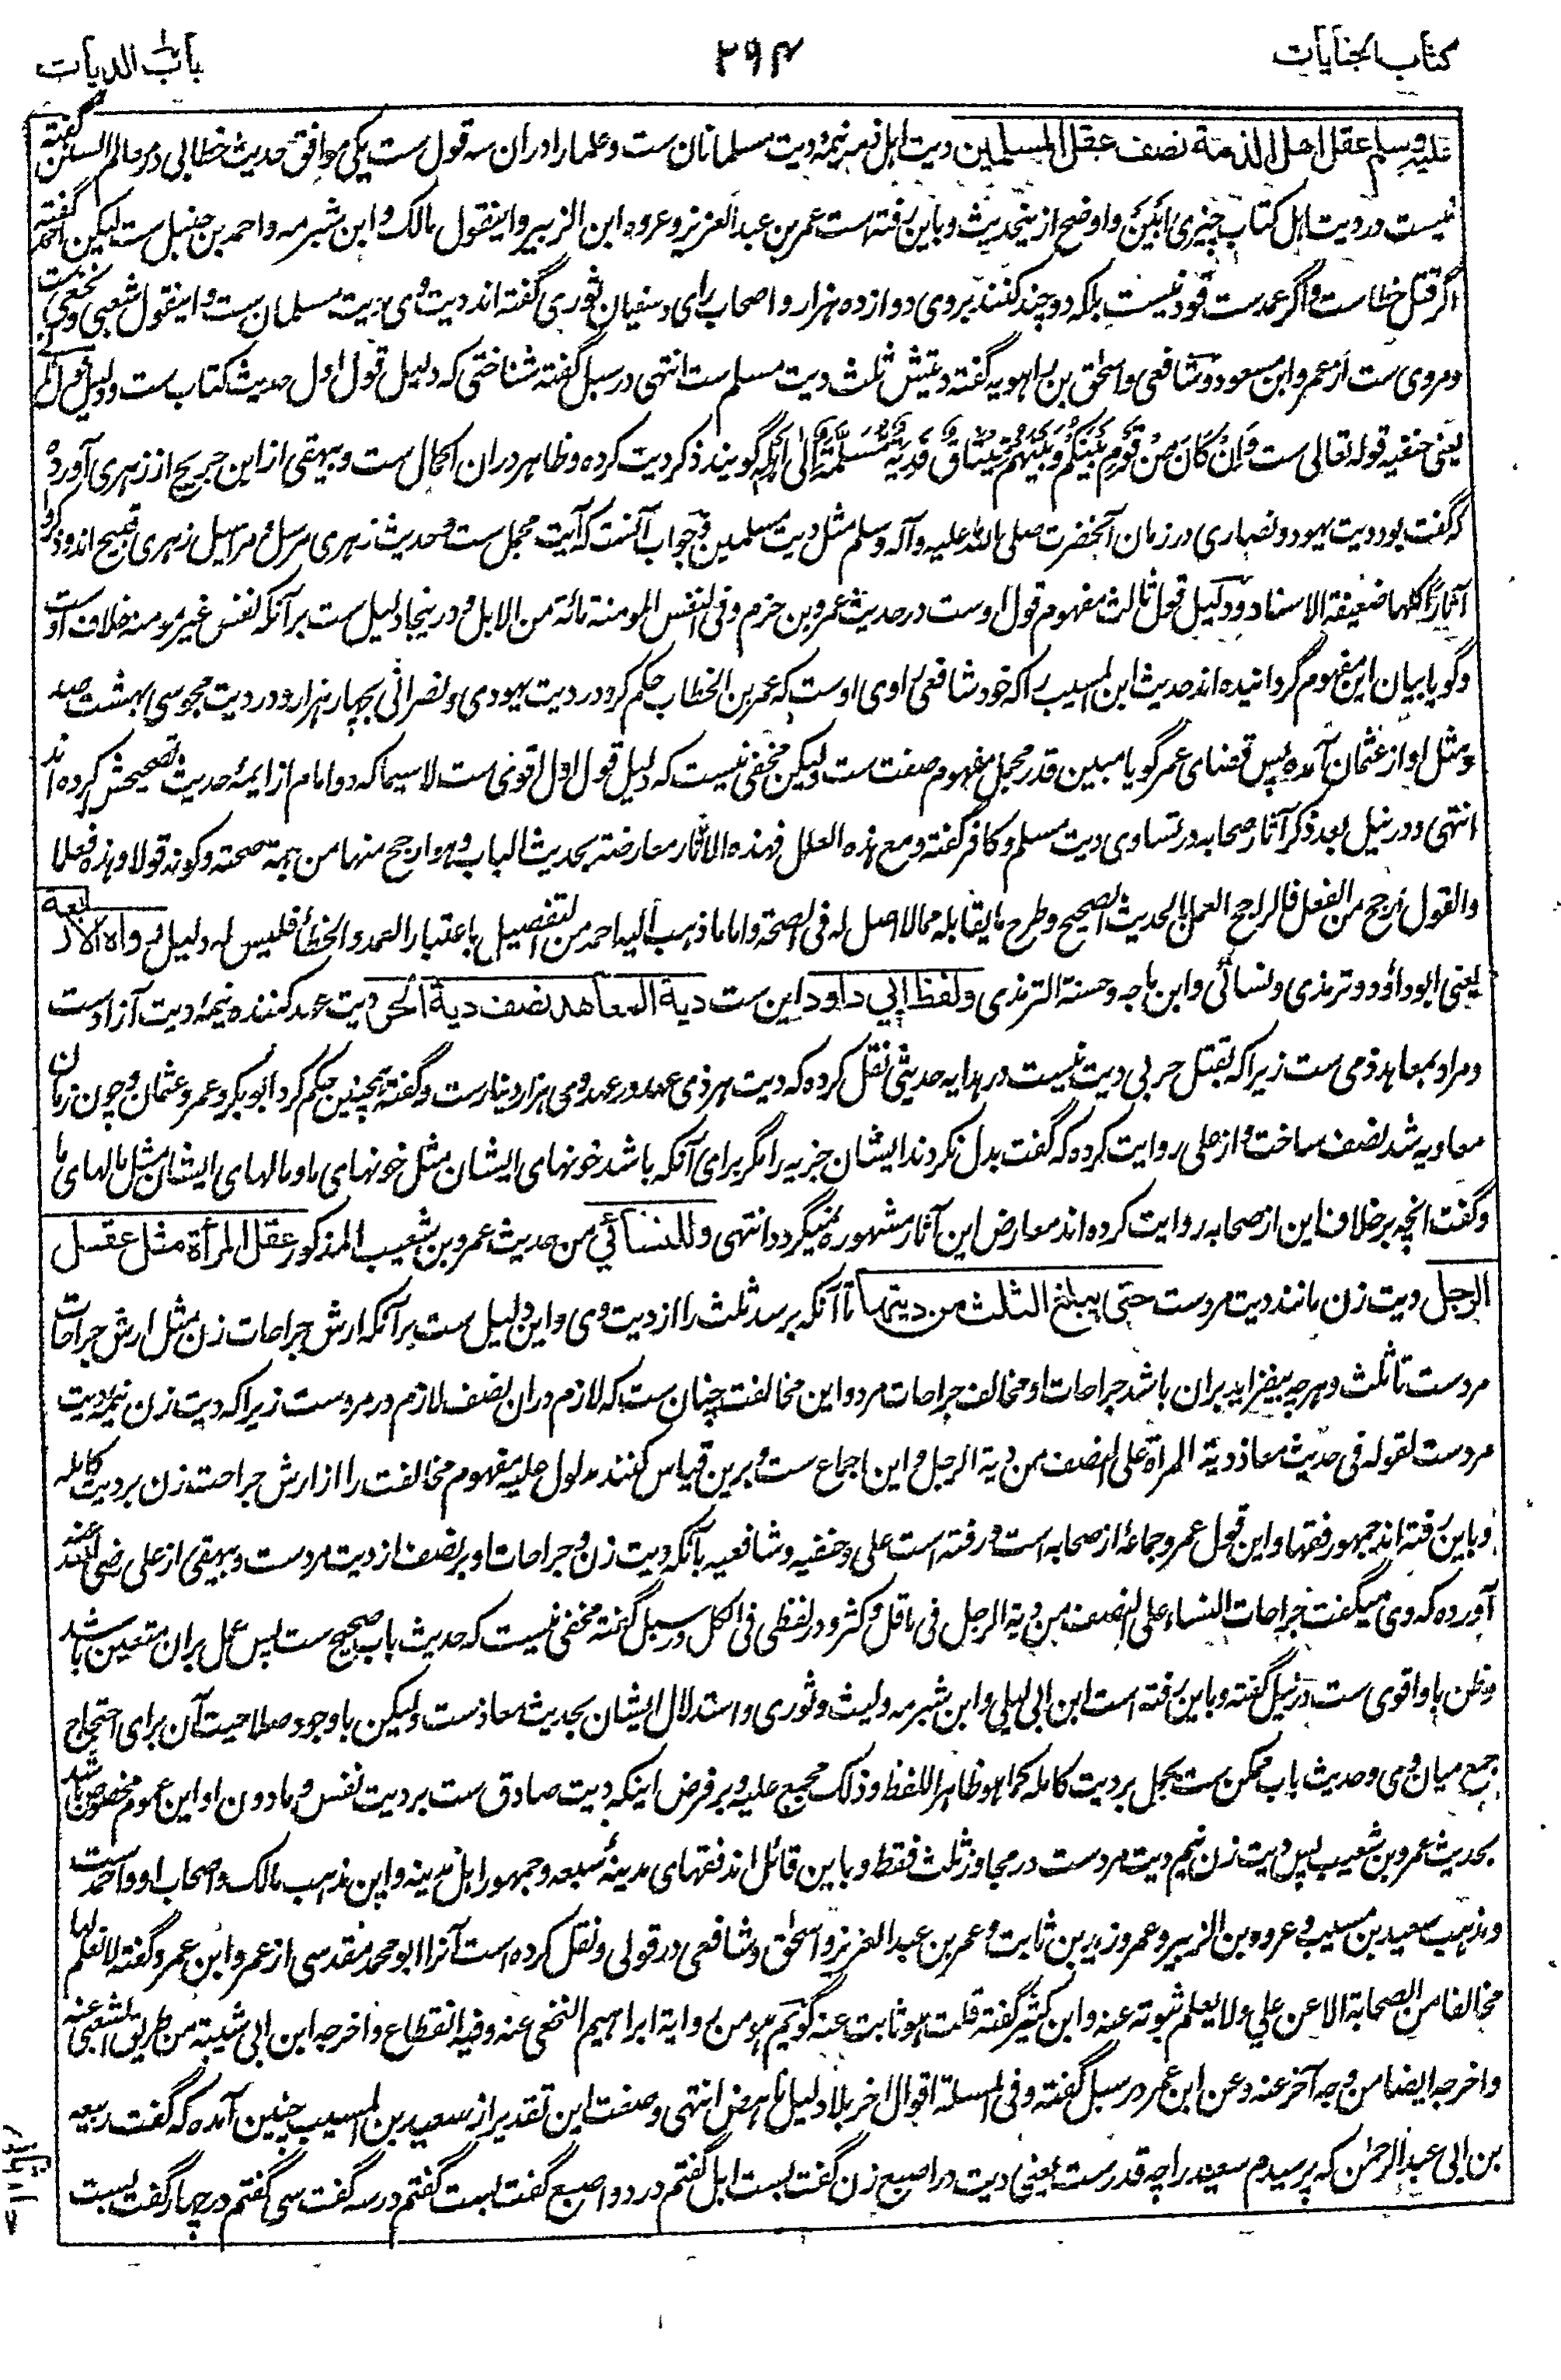 کتاب الجنایات
۲۹۴
باب الدیات
علیه وسلم عقل اهل الذمة نصف عقل المسلمین دیت اهل ذمه نیمهٔ دیت مسلمانان ست و علما را دران سه قول ست یکی موافق حدیث خطابی در معالم السنن گفته
نیست در دیت اهل کتاب چیزی ابین و اوضح ازینحدیث و باین رفته است عمر بن عبدالعزیز و عروه ابن الزبیر و اینقول مالک و ابن شبرمه و احمد بن حنبل ست لیکن احمد گفته
اگر قتل خطا ست و اگر عمدست قود نیست بلکه دو چند کنند بروی دوازده هزار و اصحاب رای و سفیان ثوری گفته اند دیت وی دیت مسلمان ست و اینقول شعبی و نخعی ست
و مروی ست از عمر و ابن مسعود و شافعی و اسحٰق بن راهویه گفته دیتش ثلث دیت مسلم ست انتهی در سبل گفته شناختی که دلیل قول اول حدیث کتاب ست و دلیل قول
یعنی حنفیه قوله تعالی ست وَاِنْ كَانَ مِنْ قَوْمٍ بَيْنَكُمْ وَبَيْنَهُمْ مِّيْثَاقٌ فَدِيَةٌ مُّسَلَّمَةٌ اِلٰى اَهْلِهٖ گویند ذکر دیت کرده و ظاهر دران اکمال ست و بیهقی از ابن جریج از زهری آورده
که گفت بود دیت یهود و نصاری در زمان آنحضرت صلی الله علیه وآله وسلم مثل دیت مسلمین و جواب آنست که آیت مجمل ست و حدیث زهری مرسل و مراسیل زهری قبیح اند و ذکروا
آثارا کلها ضعیفة الاسناد و دلیل قول ثالث مفهوم قول اوست در حدیث عمرو بن حزم و فی النفس المومنة مائة من الابل و درینجا دلیل ست بر آنکه نفس غیر مومنه خلاف اوست
و گویا بیان این مفهوم گردانیده اند حدیث ابن المسیب را که خود شافعی راوی اوست که عمر بن الخطاب حکم کرد در دیت یهودی و نصرانی بچهار هزار و در دیت مجوسی بهشت صد
و مثل او از عثمان آمده پس قضای عمر گویا مبین قدر مجمل مفهوم صفت ست ولیکن مخفی نیست که دلیل قول اول اقوی ست لاسیما که دو امام از ایمهٔ حدیث تصحیحش کرده اند
انتهی و در نیل بعد ذکر آثار صحابه در تساوی دیت مسلم و کافر گفته و مع هذه العلل فهذه الآثار معارضة بحدیث الباب وهو ارجح منها من جهة صحته و کونه قولا و هذه فعلا
والقول ارجح من الفعل فالراجح العمل بالحدیث الصحیح و طرح ما یقابله مما لا اصل له فی الصحة و اما ما ذهب الیه احمد من التفصیل باعتبار العمد والخطأ فلیس له دلیل رواه الاربعة
یعنی ابوداؤد و ترمذی و نسائی و ابن ماجه و حسنه الترمذی ولفظ ابی داود این ست دیة المعاهد نصف دیة الحر دیت عهد کننده نیمهٔ دیت آزاد ست
و مراد بمعاهد ذمی ست زیرا که بقتل حربی دیت نیست در هدایه حدیثی نقل کرده که دیت هر ذی عهد در عهد وی هزار دینار ست و گفته همچنین حکم کرد ابوبکر و عمر و عثمان و چون زمان
معاویه شد نصف ساخت و از علی روایت کرده که گفت بدل نکردند ایشان جزیه را مگر برای آنکه باشد خونهای ایشان مثل خونهای ما و مالهای ایشان مثل مالهای ما
و گفت انچه بر خلاف این از صحابه روایت کرده اند معارض این آثار مشهوره نمیگردد انتهی وللنسائی من حدیث عمرو بن شعیب المذکور عقل المرأة مثل عقل
الرجل دیت زن مانند دیت مردست حتی یبلغ الثلث من دیتها تا آنکه برسد ثلث را از دیت وی و این دلیل ست بر آنکه ارش جراحات زن مثل ارش جراحات
مردست تا ثلث و هرچه بیفزاید بران باشد جراحات او مخالف جراحات مرد و این مخالفت چنان ست که لازم دران نصف لازم در مردست زیرا که دیت زن نیمه دیت
مردست لقوله فی حدیث معاذ دیة المرأة علی النصف من دیة الرجل و این اجماع ست و برین قیاس کنند مدلول علیه مفهوم مخالفت را از ارش جراحت زن بر دیت کامله
و باین رفته اند جمهور فقها و این قول عمر و جماعهٔ از صحابه است و رفته است علی و حنفیه و شافعیه بآنکه دیت زن و جراحات او بر نصف از دیت مردست و بیهقی از علی رضی الله عنه
آورده که وی میگفت جراحات النساء علی النصف من دیة الرجل فی ما قل و کثر و در لفظی فی الکل و در سبل گفته مخفی نیست که حدیث باب صحیح ست پس عمل بران متعین باشد
و ظن باو اقوی ست در نیل گفته و باین رفته است ابن ابی لیلی و ابن شبرمه و لیث و ثوری و استدلال ایشان بحدیث معاذ ست ولیکن با وجود صلاحیت آن برای احتجاج
جمع میان وی و حدیث باب ممکن ست بحمل بر دیت کامله کما هو ظاهر اللفظ و ذلک مجمع علیه و بر فرض اینکه دیت صادق ست بر دیت نفس و مادون او این عموم مخصوص باشد
بحدیث عمرو بن شعیب پس دیت زن نیم دیت مردست در مجاوز ثلث فقط و باین قائل اند فقهای مدینهٔ سبعه و جمهور اهل مدینه و این مذهب مالک و اصحاب او و احمد ست
و مذهب سعید بن مسیب و عروه بن الزبیر و عمر و زید بن ثابت و عمر بن عبدالعزیز و اسحٰق و شافعی در قولی و نقل کرده است آنرا ابو محمد مقدسی از عمر و ابن عمر و گفته لا نعلم لهما
مخالفا من الصحابة الا عن علی ولا یعلم ثبوته عنه و ابن کثیر گفته قلت هو ثابت عنه گویم هو من روایة ابراهیم النخعی عنه وفیه انقطاع و اخرجه ابن ابی شیبة من طریق الشعبی عنه
و اخرجه ایضا من وجه آخر عنه و عن ابن عمر در سبل گفته و فی المسئلة اقوال اخر بلا دلیل ناهض انتهی و صفت این تقدیر از سعید بن المسیب چنین آمده که گفت ربیعه
بن ابی عبدالرحمٰن که پرسیدم سعید را چه قدرست یعنی دیت در اصبع زن گفت بست ابل گفتم در دو اصبع گفت بست گفتم در سه گفت سی گفتم در چهار گفت بست